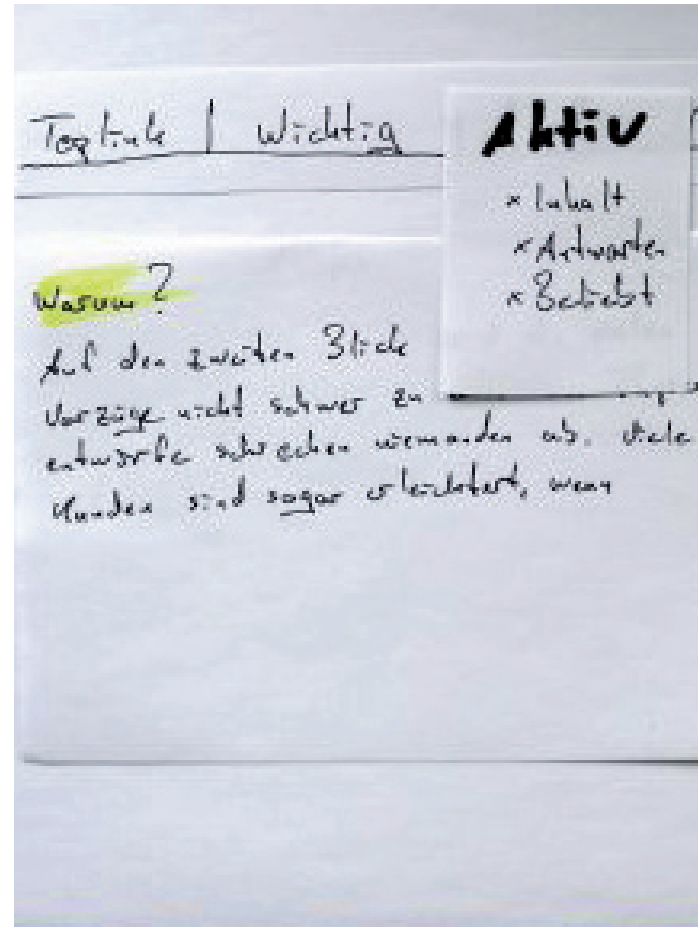 Toplink | Wichtig
Aktiv
× Inhalt
× Antworten
× Beliebt
Warum?
Auf den zweiten Blick
Vorzüge nicht schwer zu
entwürfe schrecken niemanden ab. Viele
Kunden sind sogar erleichtert, wenn